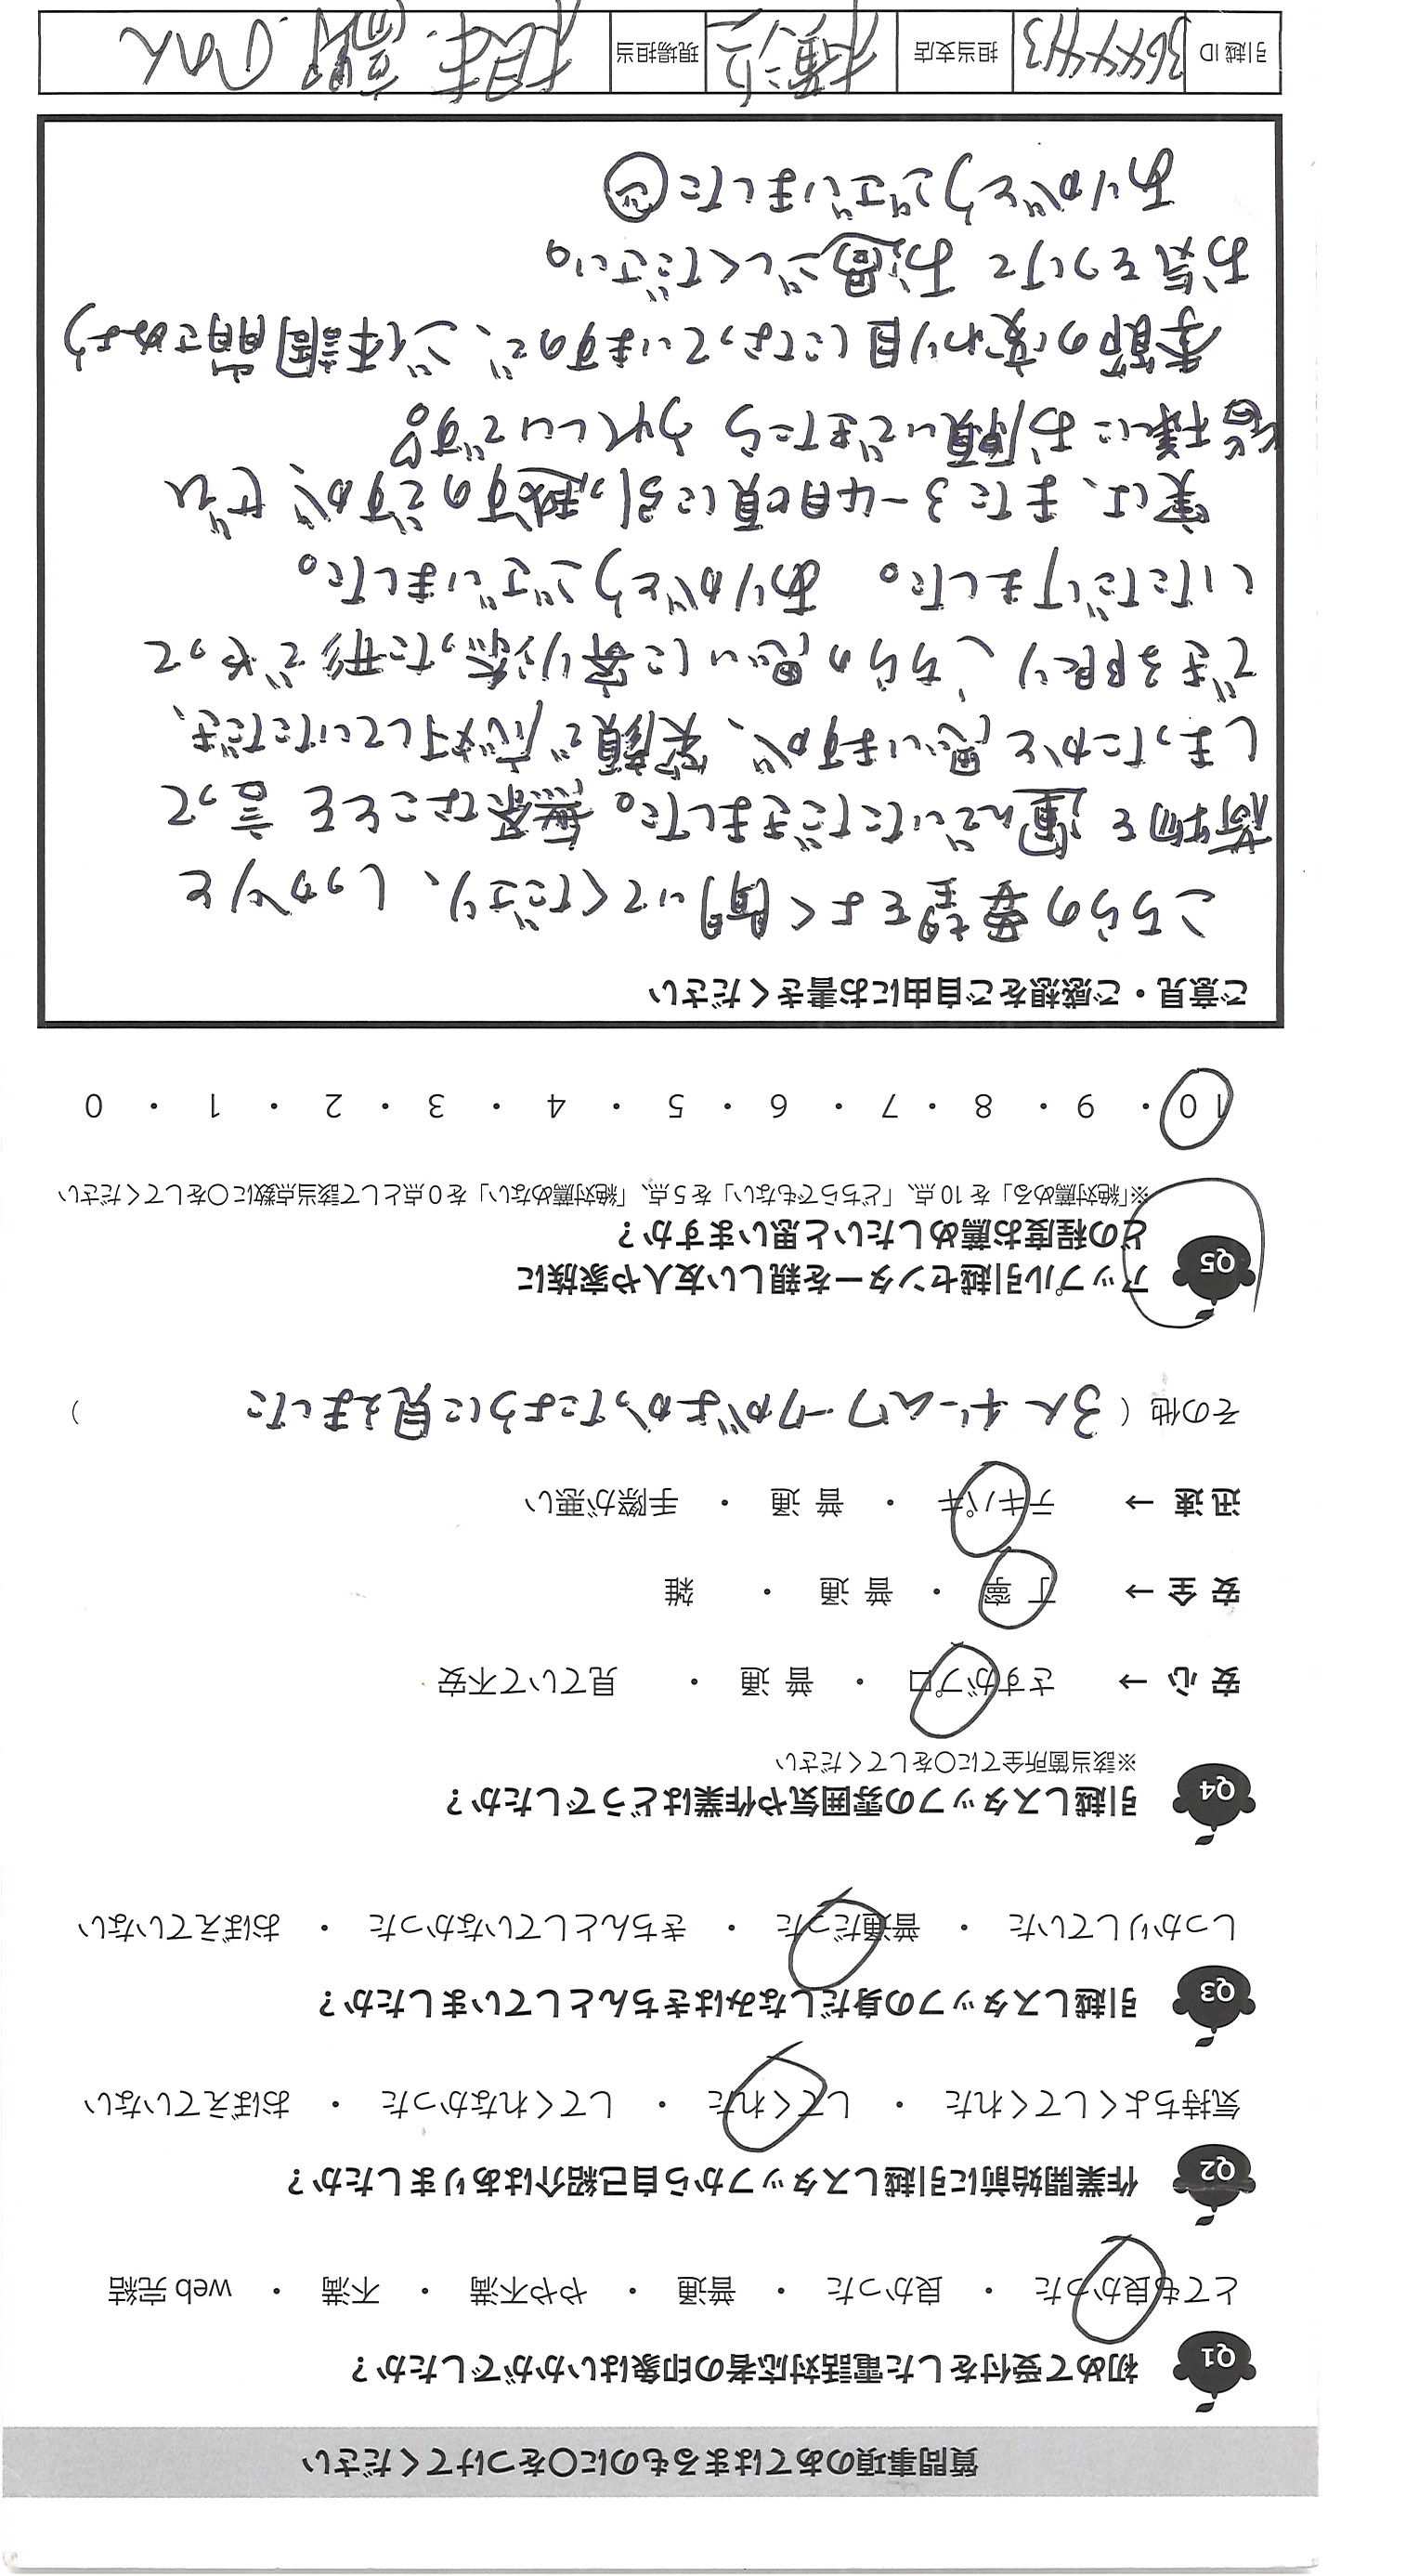 質問事項のあてはまるものに○をつけてください
Q1 初めて受付をした電話対応者の印象はいかがでしたか？
とても良かった ・ 良かった ・ 普通 ・ やや不満 ・ 不満 ・ web 完結
Q2 作業開始前に引越しスタッフから自己紹介はありましたか？
気持ちよくしてくれた ・ してくれた ・ してくれなかった ・ おぼえていない
Q3 引越しスタッフの身だしなみはきちんとしていましたか？
しっかりしていた ・ 普通だった ・ きちんとしていなかった ・ おぼえていない
Q4 引越しスタッフの雰囲気や作業はどうでしたか？
※該当箇所全てに○をしてください
安 心 → さすがプロ ・ 普 通 ・ 見ていて不安
安 全 → 丁 寧 ・ 普 通 ・ 雑
迅 速 → テキパキ ・ 普 通 ・ 手際が悪い
その他（ 3人チームワークがよかったように見えました ）
Q5 アップル引越センターを親しい友人や家族に
どの程度お薦めしたいと思いますか？
※「絶対薦める」を 10 点、「どちらでもない」を 5 点、「絶対薦めない」を 0 点として該当点数に○をしてください
10 ・ 9 ・ 8 ・ 7 ・ 6 ・ 5 ・ 4 ・ 3 ・ 2 ・ 1 ・ 0
ご意見・ご感想をご自由にお書きください
こちらの要望をよく聞いてくださり、しっかりと
荷物を運んでいただきました。無茶なことを言って
しまったかと思いますが、笑顔で応対していただき、
できる限り、こちらの思いに寄り添った形でやって
いただけました。 ありがとうございました。
実は、また3-4月頃に引っ越すのですが、ぜひ
皆様にお願いできたら うれしいです♡
季節の変わり目になっていますので、ご体調崩さぬよう
お気をつけて お過ごしください。
ありがとうございました
引越 ID 3644443 担当支店 横浜 現場担当